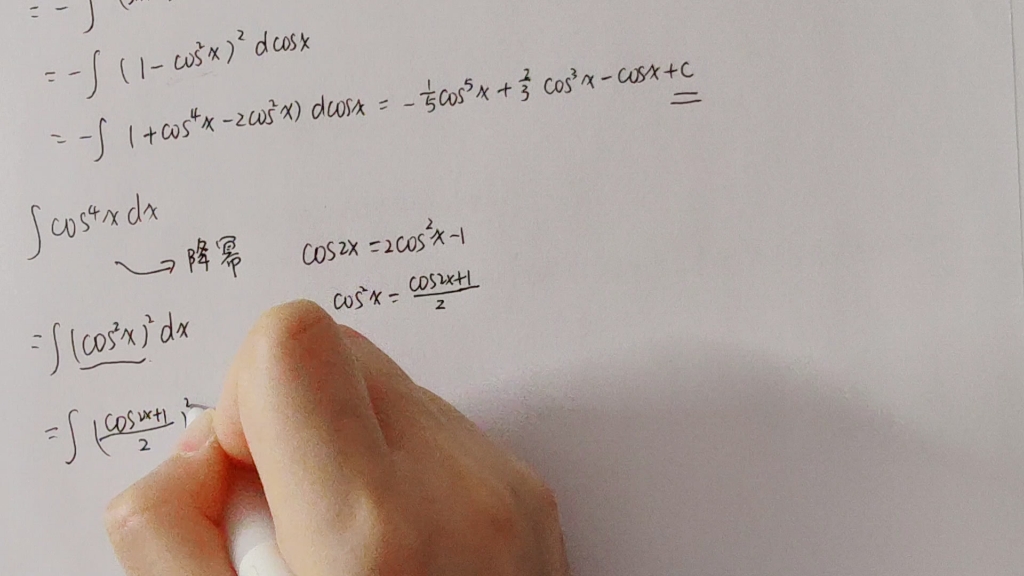 = - ∫
= - ∫ (1 - cos²x)² dcosx
= - ∫ 1 + cos⁴x - 2cos²x) dcosx = - 1/5 cos⁵x + 2/3 cos³x - cosx + C
∫ cos⁴x dx
降幂
cos2x = 2cos²x - 1
cos²x = (cos2x+1)/2
= ∫ (cos²x)² dx
= ∫ (cos2x+1/2)²